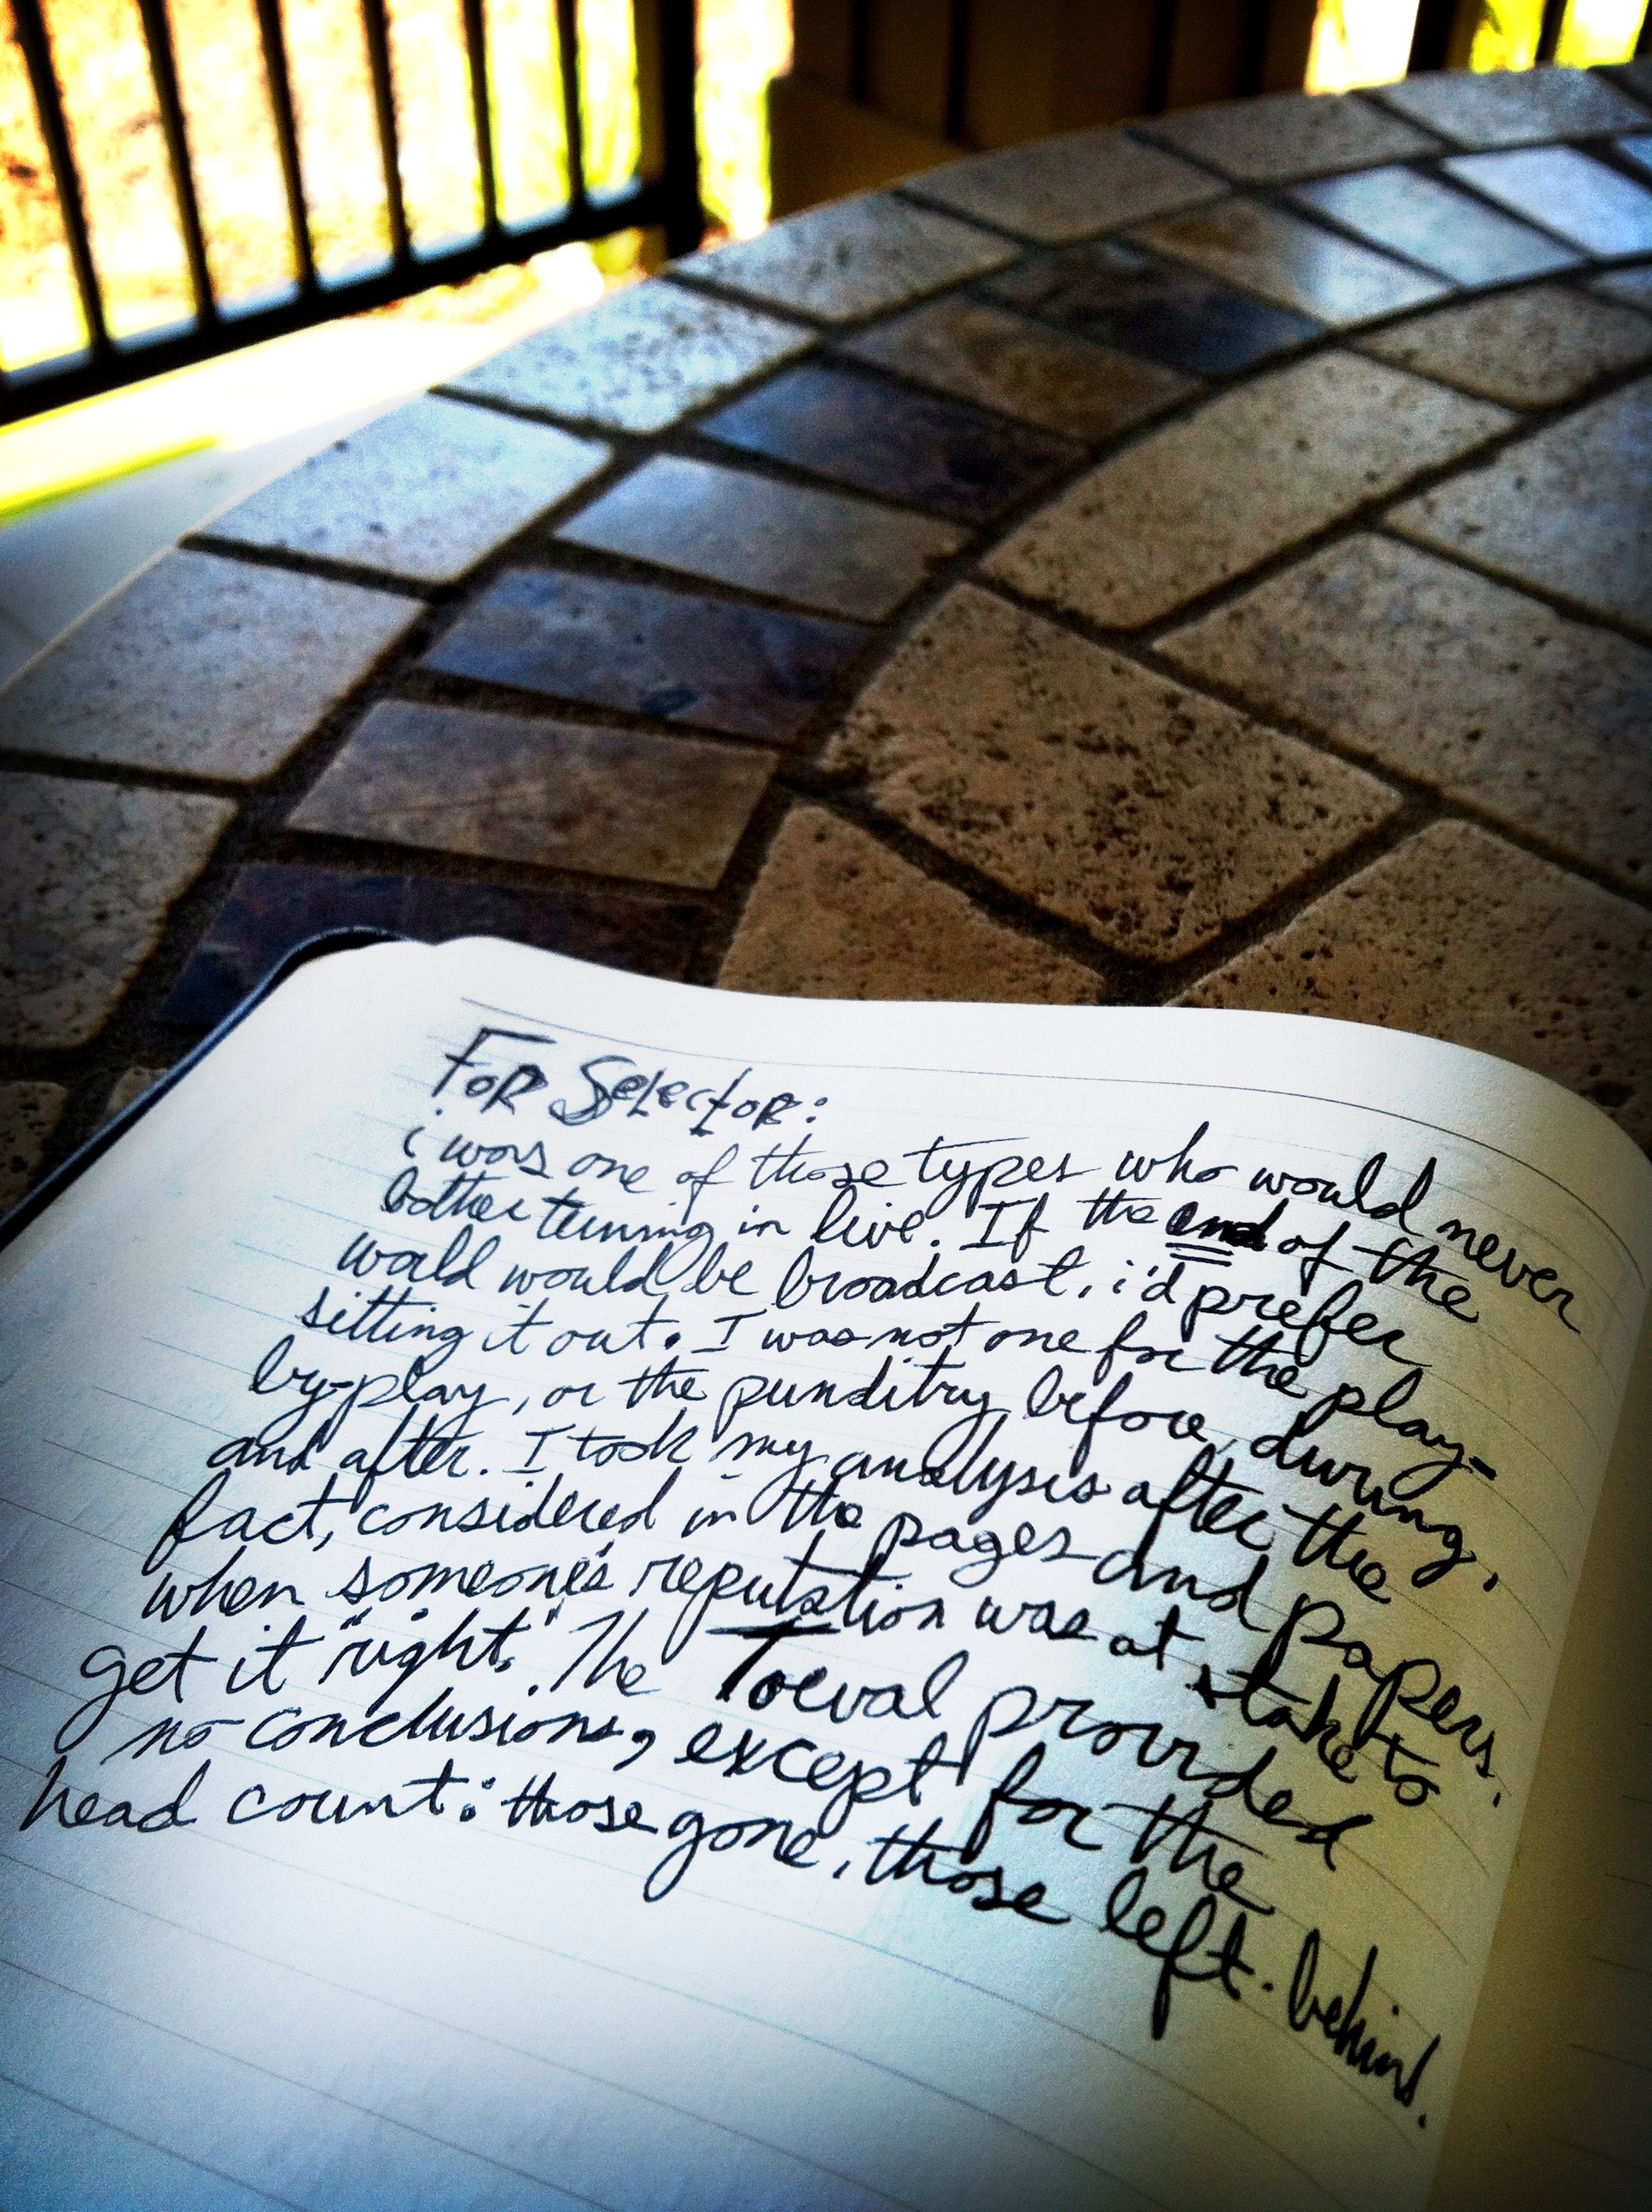 FOR SELECTOR:
i was one of those types who would never
bother tuning in live. If the end of the
world would be broadcast, i'd prefer
sitting it out. I was not one for the play-
by-play, or the punditry before, during,
and after. I took my analysis after the
fact, considered in the pages and papers.
when someone's reputation was at stake to
get it "right." The Toeval provided
no conclusions, except for the
head count: those gone, those left. behind.